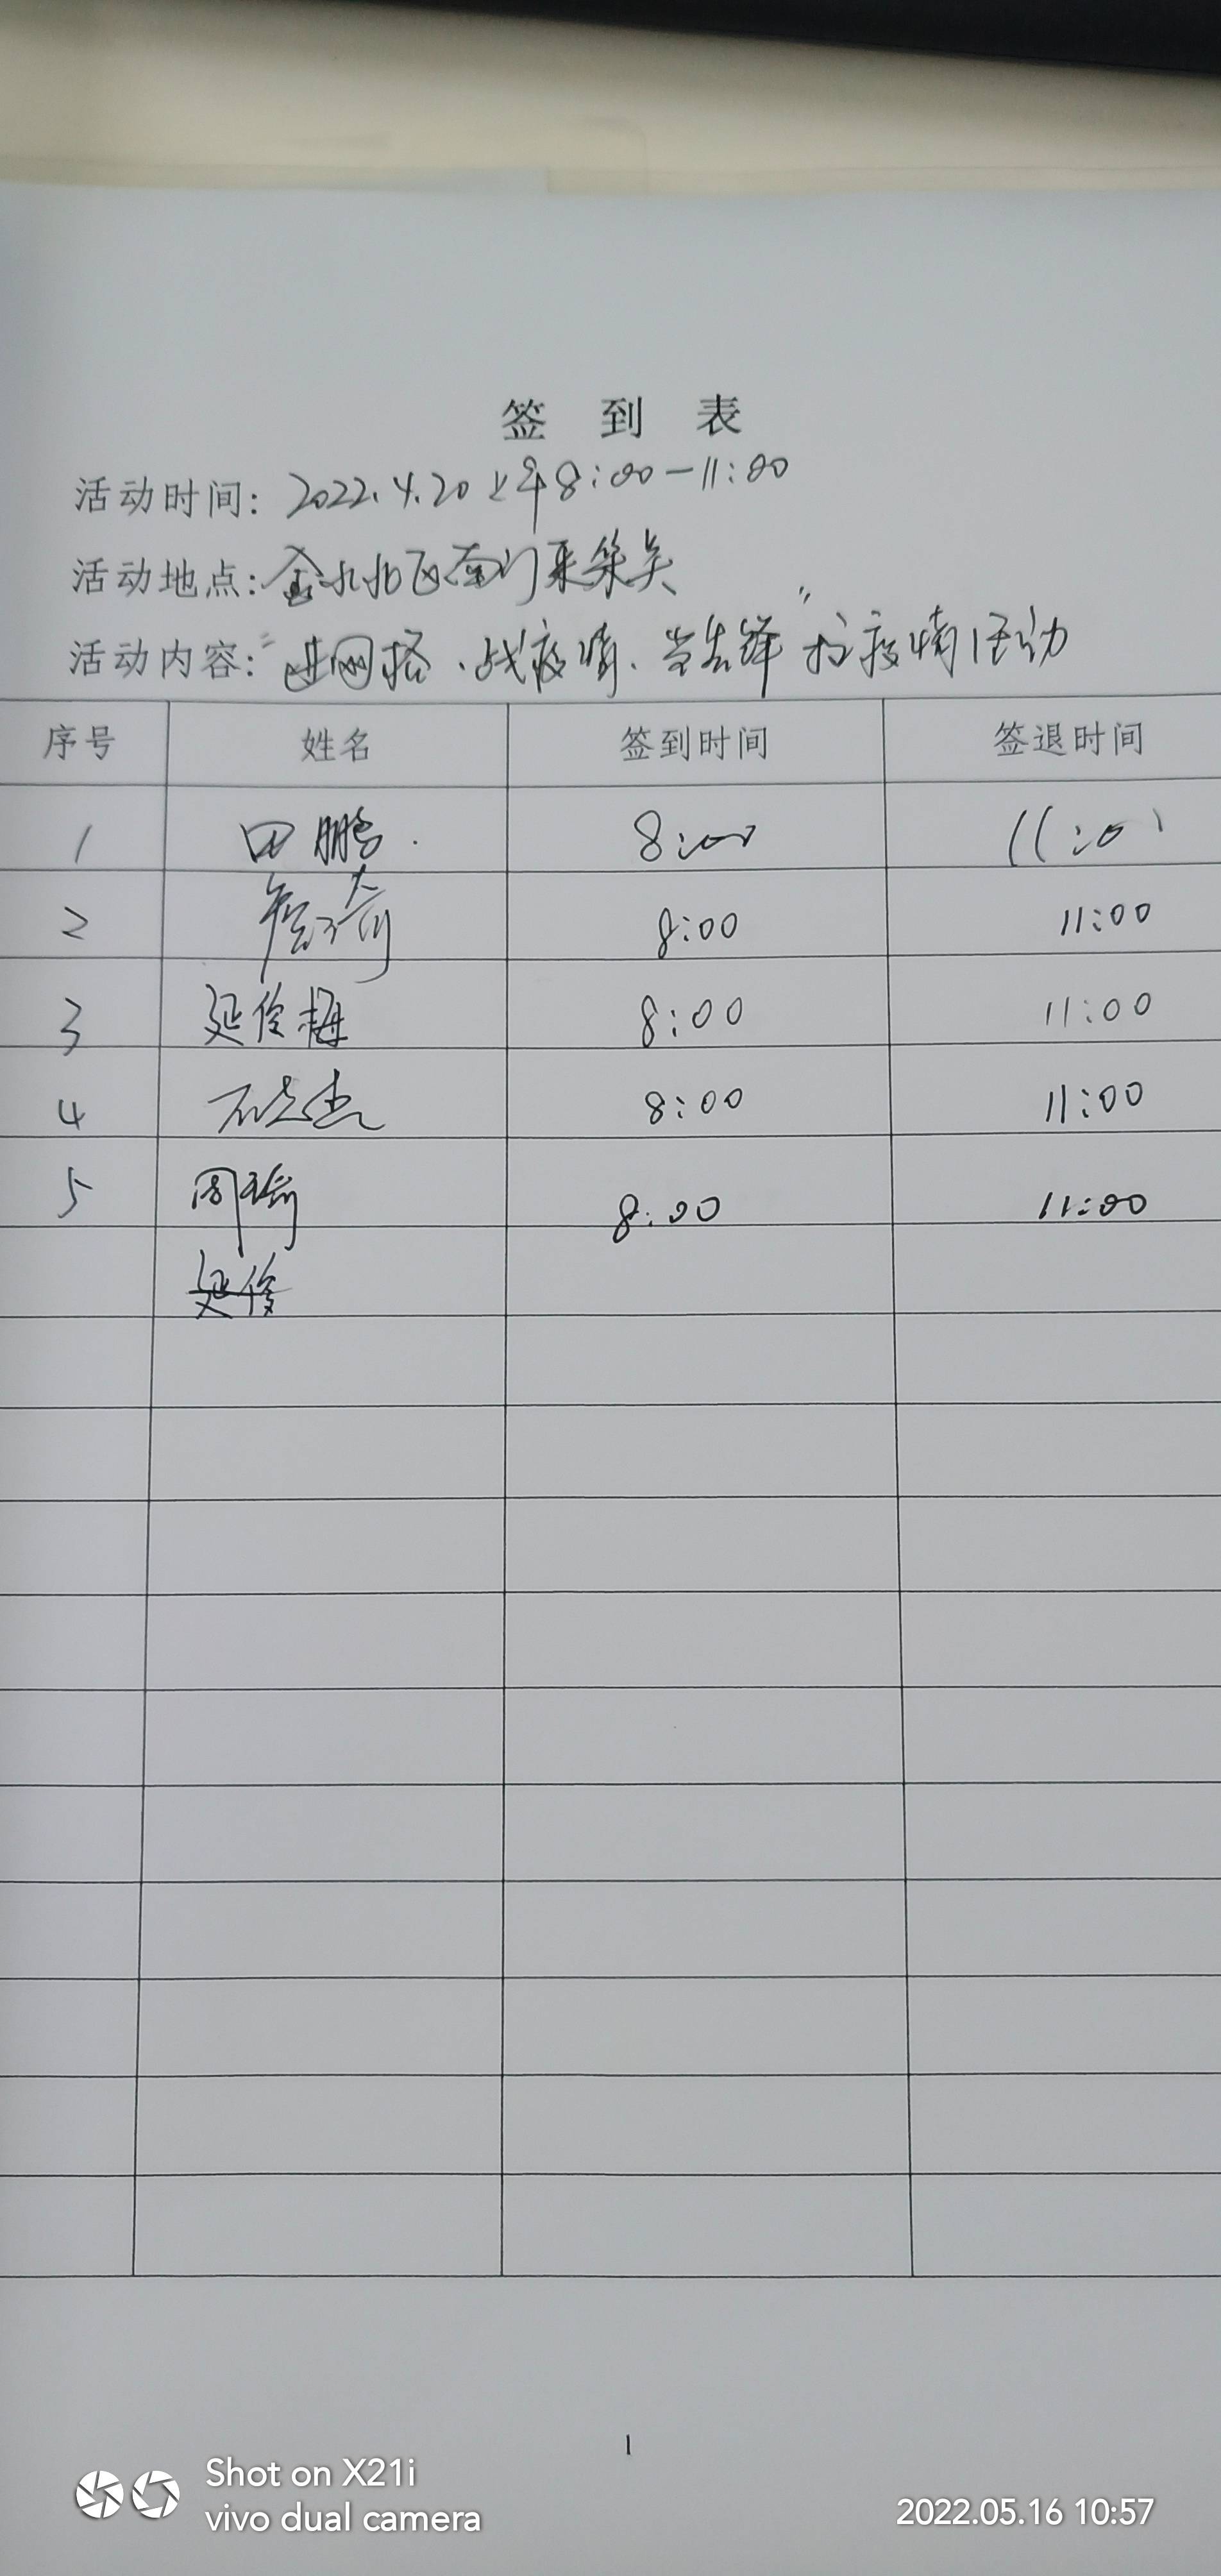 签 到 表
活动时间: 2022.4.20上午8:00-11:00
活动地点: 金水北区南门采集点
活动内容: "进网格、战疫情、当先锋"抗疫情活动
序号 姓名 签到时间 签退时间
1 田鹏 8:00 11:00
2 8:00 11:00
3 延俊梅 8:00 11:00
4 8:00 11:00
5 周瑜 8:00 11:00
延俊
1
Shot on X21i
vivo dual camera
2022.05.16 10:57